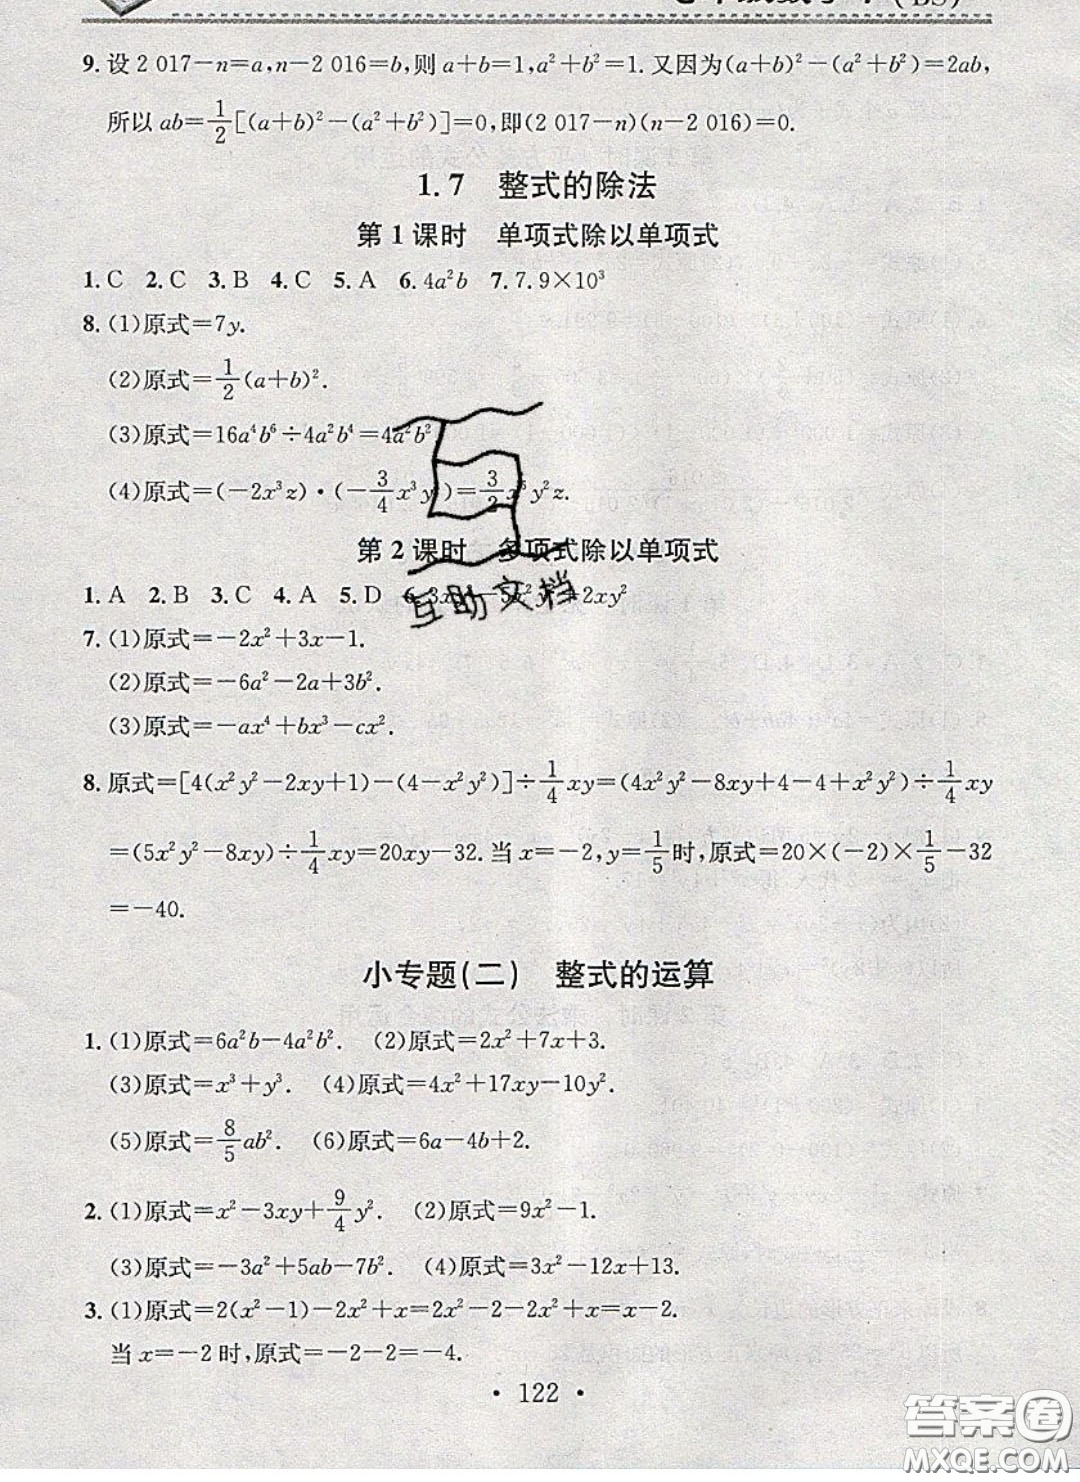 (BS)
9. 设 2 017－n＝a,n－2 016＝b,则 a＋b＝1,a²＋b²＝1. 又因为(a＋b)²－(a²＋b²)＝2ab,
所以 ab＝1/2[(a＋b)²－(a²＋b²)]＝0,即(2 017－n)(n－2 016)＝0.
1.7 整式的除法
第1课时 单项式除以单项式
1. C 2. C 3. B 4. C 5. A 6. 4a²b 7. 7.9×10³
8. (1)原式＝7y.
(2)原式＝1/2(a＋b)².
(3)原式＝16a⁴b⁶÷4a²b⁴＝4a²b²
(4)原式＝(－2x³z)·(－3/4x³y²)＝3/2x⁶y²z.
第2课时 多项式除以单项式
1. A 2. B 3. C 4. A 5. D 6. ＋2xy²
互助文档
7. (1)原式＝－2x²＋3x－1.
(2)原式＝－6a²－2a＋3b².
(3)原式＝－ax⁴＋bx³－cx².
8. 原式＝[4(x²y²－2xy＋1)－(4－x²y²)]÷1/4xy＝(4x²y²－8xy＋4－4＋x²y²)÷1/4xy
＝(5x²y²－8xy)÷1/4xy＝20xy－32. 当 x＝－2,y＝1/5时,原式＝20×(－2)×1/5－32
＝－40.
小专题(二) 整式的运算
1. (1)原式＝6a²b－4a²b². (2)原式＝2x²＋7x＋3.
(3)原式＝x³＋y³. (4)原式＝4x²＋17xy－10y².
(5)原式＝8/5ab². (6)原式＝6a－4b＋2.
2. (1)原式＝x²－3xy＋9/4y². (2)原式＝9x²－1.
(3)原式＝－3a²＋5ab－7b². (4)原式＝3x²－12x＋13.
3. (1)原式＝2(x²－1)－2x²＋x＝2x²－2－2x²＋x＝x－2.
当 x＝－2 时,原式＝－2－2＝－4.
· 122 ·
答案圈
MXQE.COM